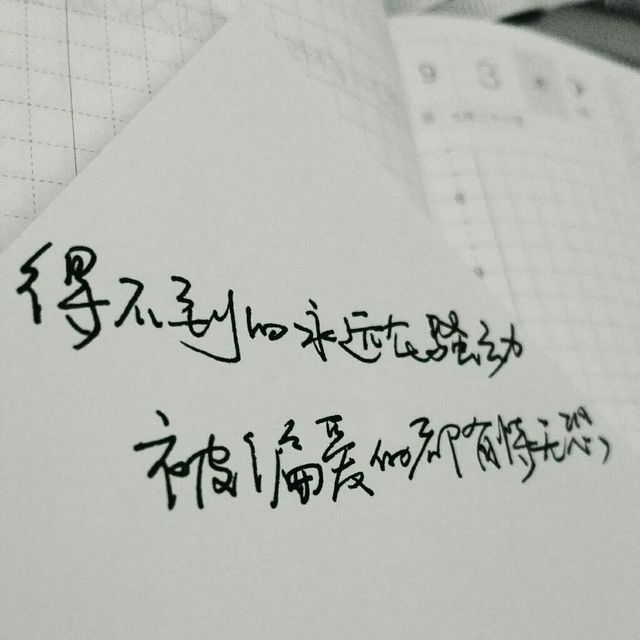 得不到的永远在骚动
被偏爱的都有恃无恐,